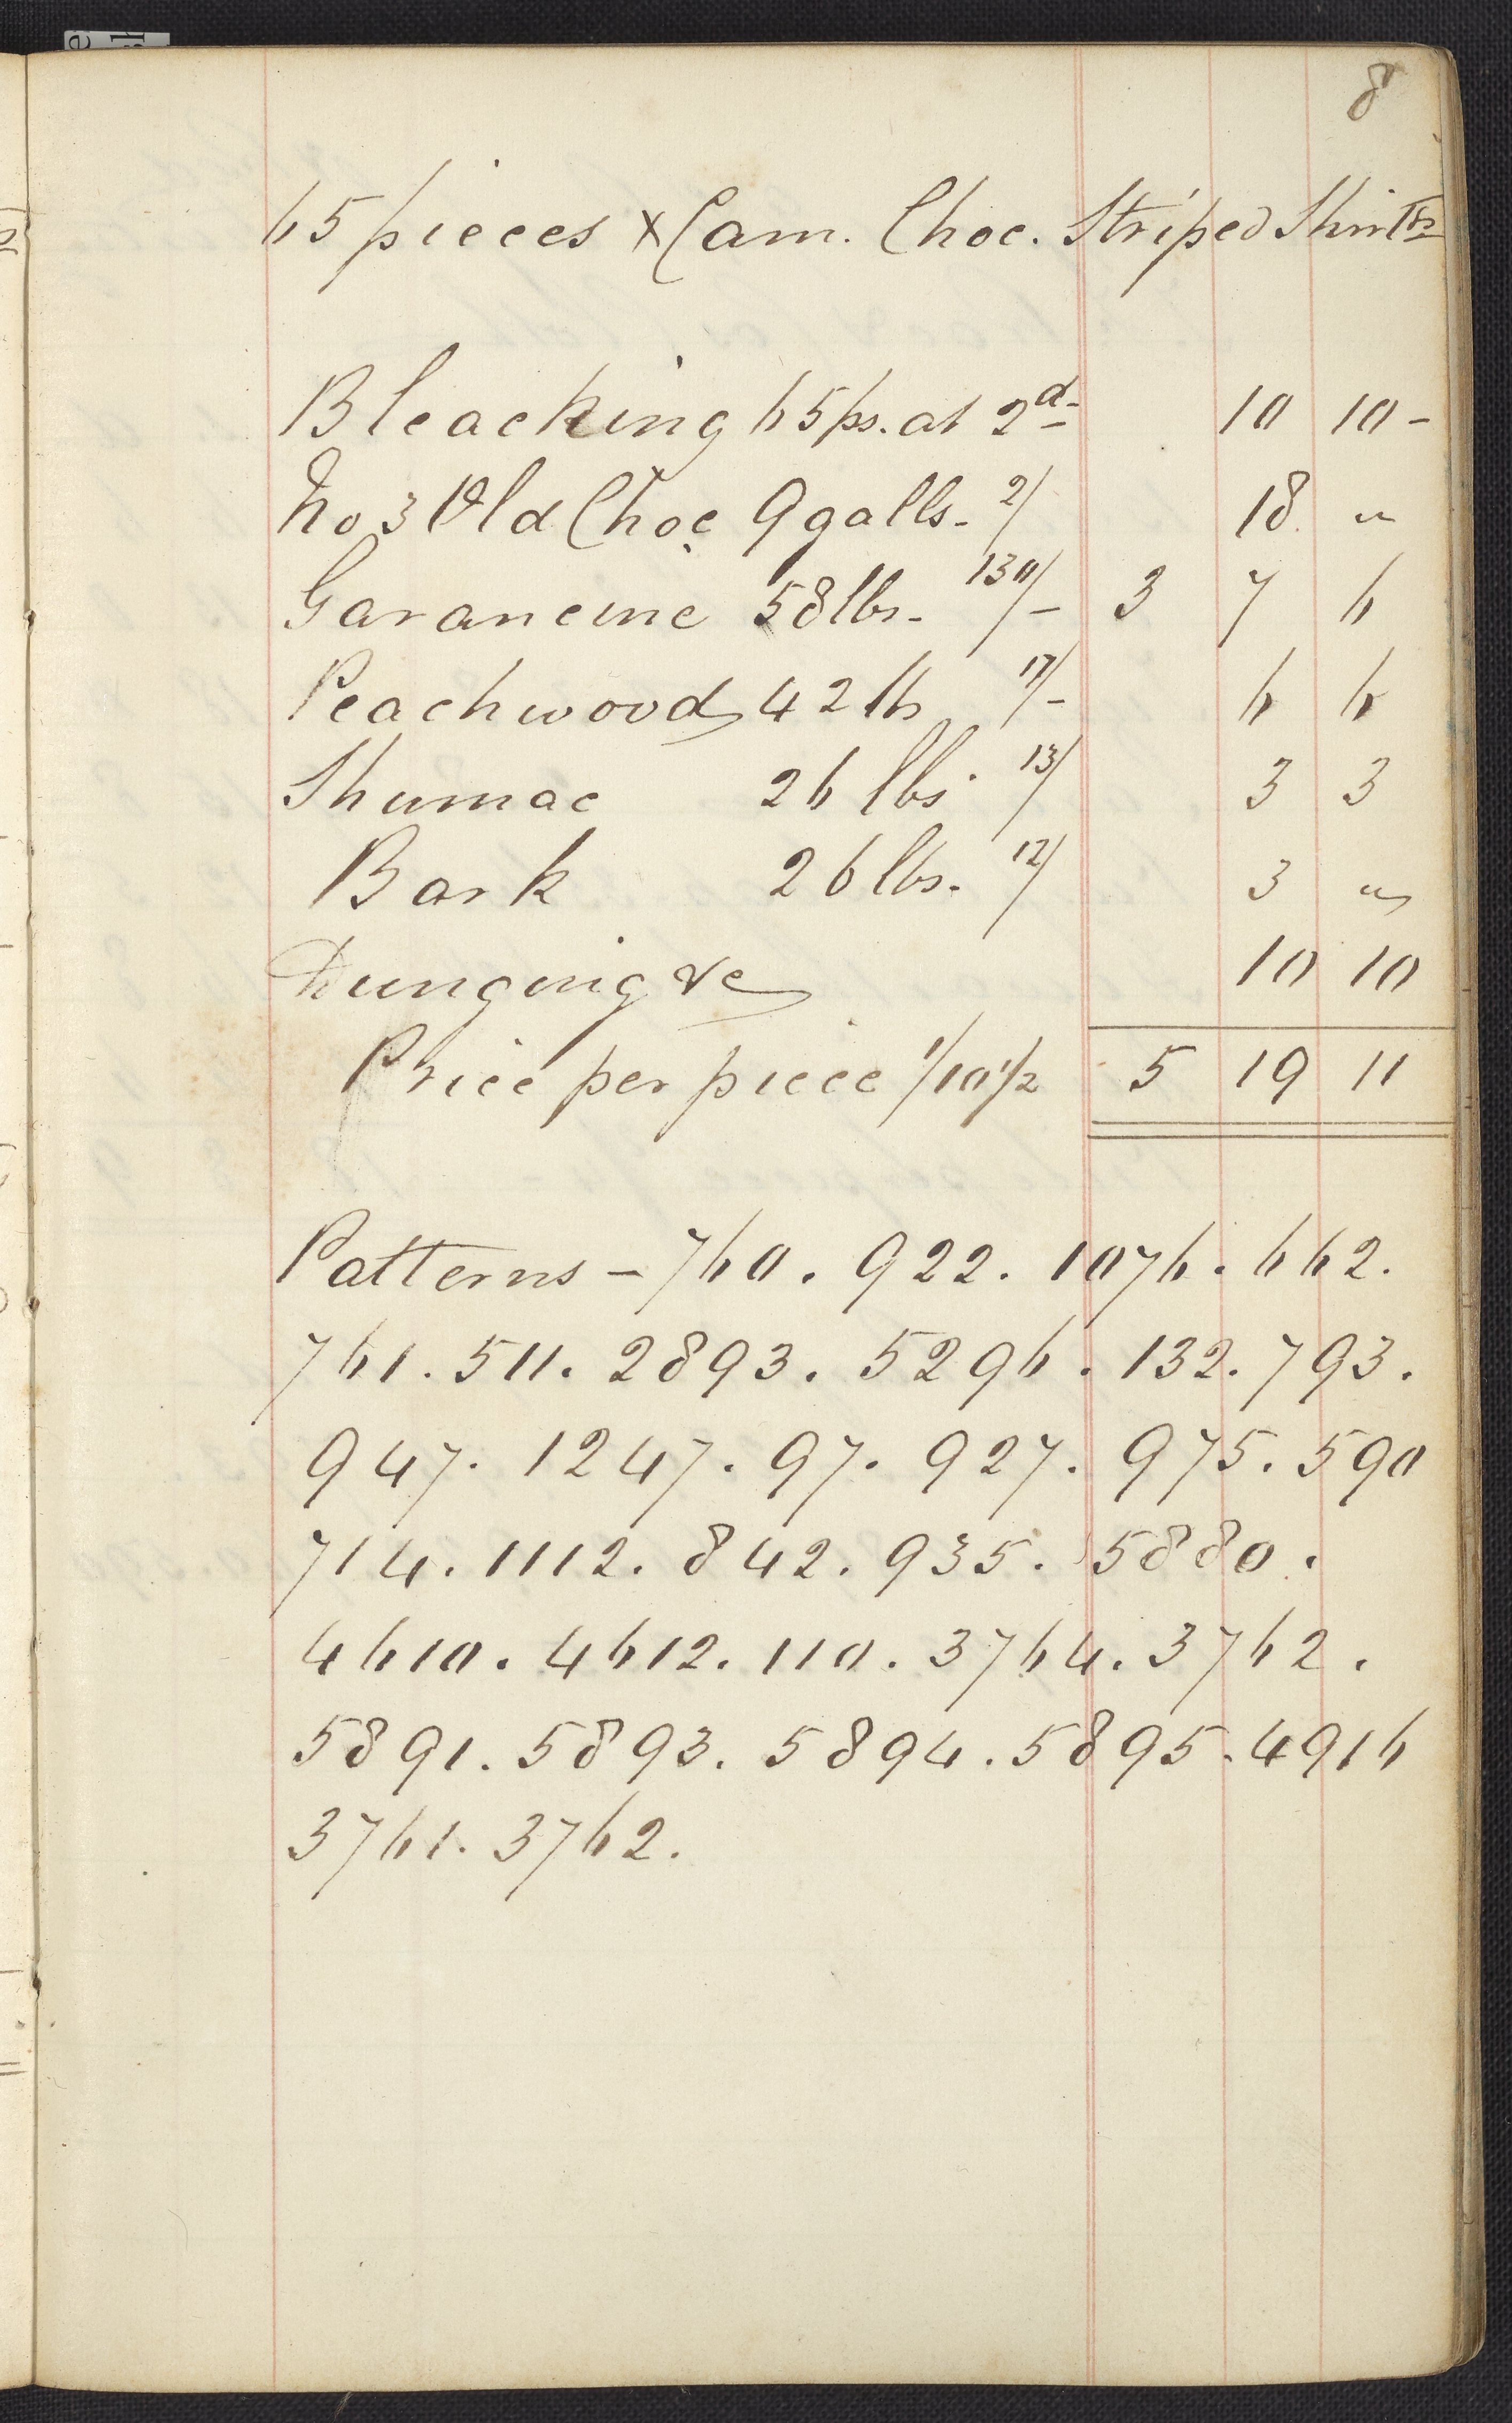 8
65 pieces x Cam. Choc. Striped Shirtgs
Bleaching 65 ps. at 2d- 10 10 -
No 3 Old Choc 9 galls- 2/ 18 "
Garancine 58 lbs- 130/- 3 7 6
Peachwood 42 lbs 17/- 6 6
Shumac 26 lbs 13/ 3 3
Bark 26 lbs. 12/ 3 "
Dunging &c 10 10
Price per piece 1/10 1/2 5 19 11
Patterns - 760. 922. 1076. 662.
761. 511. 2893. 5296. 132. 793.
947. 1247. 97. 927. 975. 590
714. 1112. 842. 935. 5880.
4610. 4612. 110. 3764. 3762.
5891. 5893. 5894. 5895. 4916
3761. 3762.